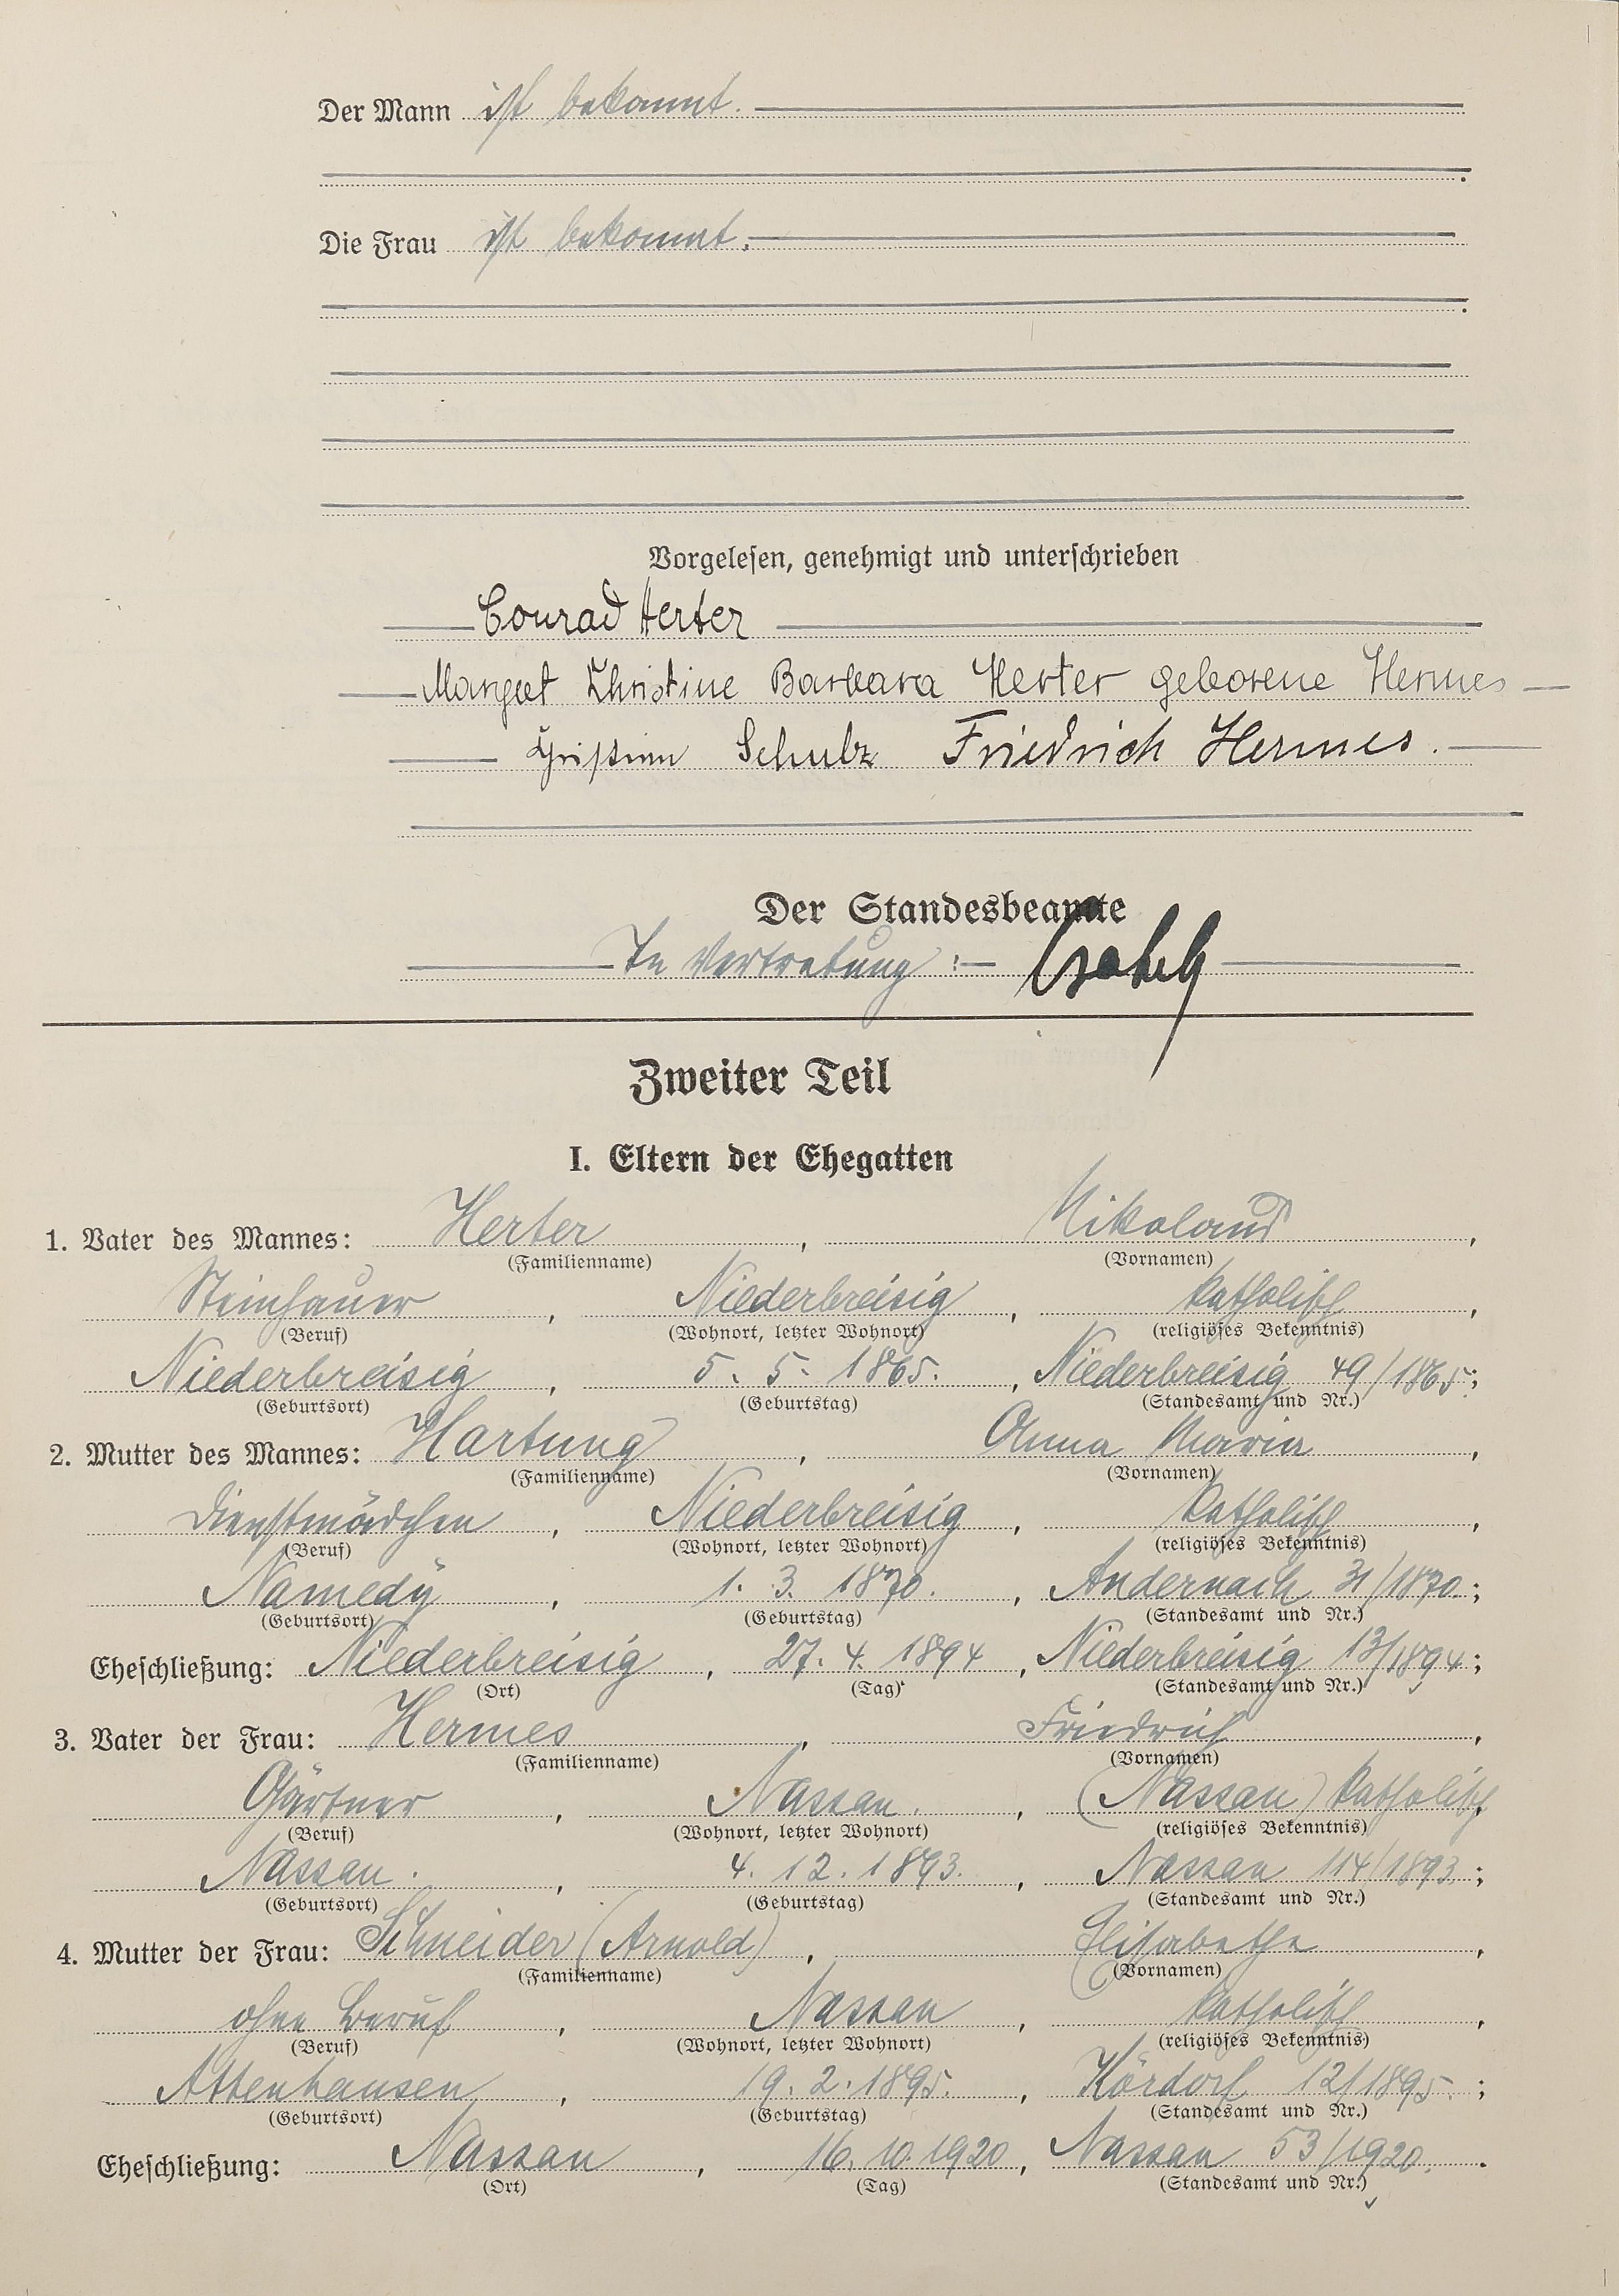 Der Mann ist bekannt.
Die Frau ist bekannt.
Vorgelesen, genehmigt und unterschrieben
Conrad Herter
Margret Christine Barbara Herter geborene Hermes
Schulz Friedrich Hermes.
Der Standesbeamte
In Vertretung:
Zweiter Teil
I. Eltern der Ehegatten
1. Vater des Mannes: Herter, Nikolaus,
(Familienname) (Vornamen)
Steinhauer, Niederbreisig, katholisch,
(Beruf) (Wohnort, letzter Wohnort) (religiöses Bekenntnis)
Niederbreisig, 5. 5. 1865., Niederbreisig 49/1865;
(Geburtsort) (Geburtstag) (Standesamt und Nr.)
2. Mutter des Mannes: Hartung, Anna Maria,
(Familienname) (Vornamen)
Dienstmädchen, Niederbreisig, katholisch,
(Beruf) (Wohnort, letzter Wohnort) (religiöses Bekenntnis)
Namedy, 1. 3. 1870., Andernach 31/1870.;
(Geburtsort) (Geburtstag) (Standesamt und Nr.)
Eheschließung: Niederbreisig, 27. 4. 1894, Niederbreisig 13/1894;
(Ort) (Tag) (Standesamt und Nr.)
3. Vater der Frau: Hermes, Friedrich,
(Familienname) (Vornamen)
Gärtner, Nassau., (Nassau) katholisch,
(Beruf) (Wohnort, letzter Wohnort) (religiöses Bekenntnis)
Nassau., 4. 12. 1893., Nassau 114/1893.;
(Geburtsort) (Geburtstag) (Standesamt und Nr.)
4. Mutter der Frau: Schneider (Arnold), Elisabethe,
(Familienname) (Vornamen)
ohne Beruf, Nassau, katholisch,
(Beruf) (Wohnort, letzter Wohnort) (religiöses Bekenntnis)
Attenhausen, 19. 2. 1895., Kördorf 12/1895.;
(Geburtsort) (Geburtstag) (Standesamt und Nr.)
Eheschließung: Nassau, 16. 10. 1920, Nassau 53/1920.
(Ort) (Tag) (Standesamt und Nr.)